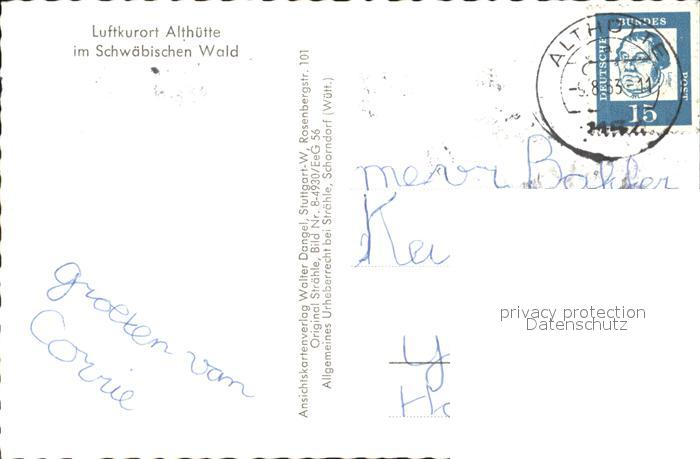 Luftkurort Althütte
im Schwäbischen Wald
groeten van
Corrie
Ansichtskartenverlag Walter Dangel, Stuttgart-W, Rosenbergstr. 101
Original Strähle, Bild Nr. 8-4930/EeG 56
Allgemeines Urheberrecht bei Strähle, Schorndorf (Württ.)
ALTHÜTTE
DEUTSCHE BUNDESPOST
15
mevr Bakker
privacy protection
Datenschutz